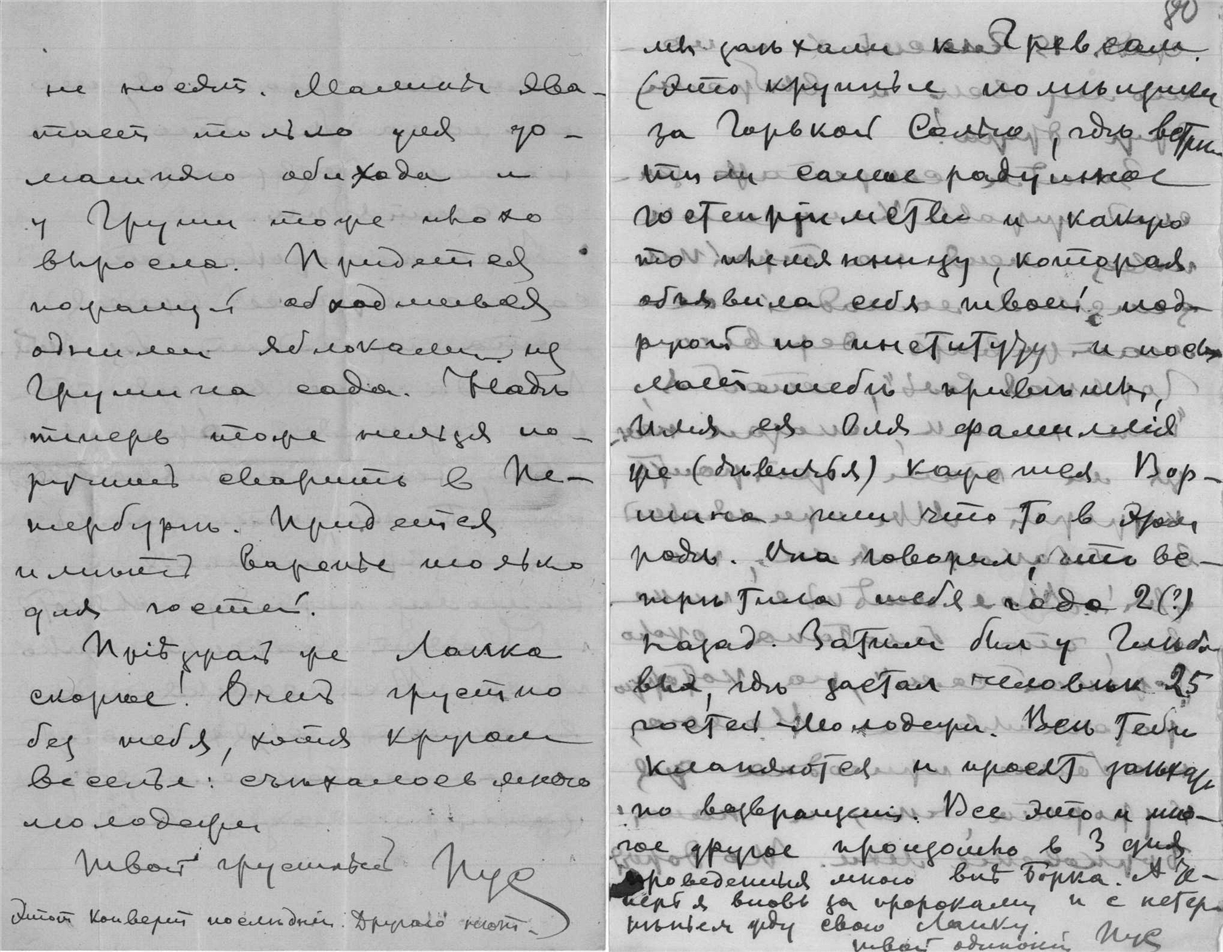 не носят. Малины хва-
тает только для до-
машняго обихода и
у Груши тоже плохо
выросла. Придется
пожалуй обходиться
одними яблоками из
Грушина сада. Надѣ
теперь тоже нельзя по-
ручить сварить в Пе-
тербургѣ. Придется
имѣть варенье только
для гостей.
Пріѣзжай же Лапка
скорѣе! Очень грустно
без тебя, хотя кругом
веселье: съѣхалось много
молодежи
Твой грустный Пус
Этот конверт послѣдній. Другого нет.
80
мы заѣхали к
(Это крупные помѣщики
за Горькой Солью, гдѣ встрѣ-
тили самое радушное
гостепріимство и какую
то племянницу, которая
объявила себя твоей под-
ругой по институту и посы-
лает тебѣ привѣт,
Имя ея Оля фамилія
же (дѣвичья) кажется Вор-
или что то в этом
родѣ. Она говорит, что вс-
трѣтила тебя года 2(?)
назад. Затѣм был у
гдѣ застал человѣк 25
гостей молодежи. Всѣ Тебѣ
кланяются и просят заѣхать
по возвращеніи. Все это и мно-
гое другое произошло в 3 дня
проведенныя мною внѣ Борка. А те-
перь я вновь за и с нетер-
пѣньем жду свою Лапку.
твой одинокій Пус